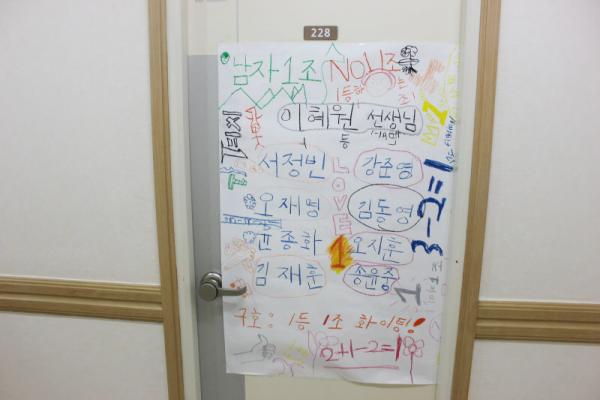 228
남자1조 NO.1조
1등하는 조!
이혜원 선생님
1등
서정빈 강준영
오재명 김동영
윤종화 오지훈
김재훈 송윤중
LOVE
1
3-2=1
1
구호: 1등 1조 화이팅!
2+1-2=1